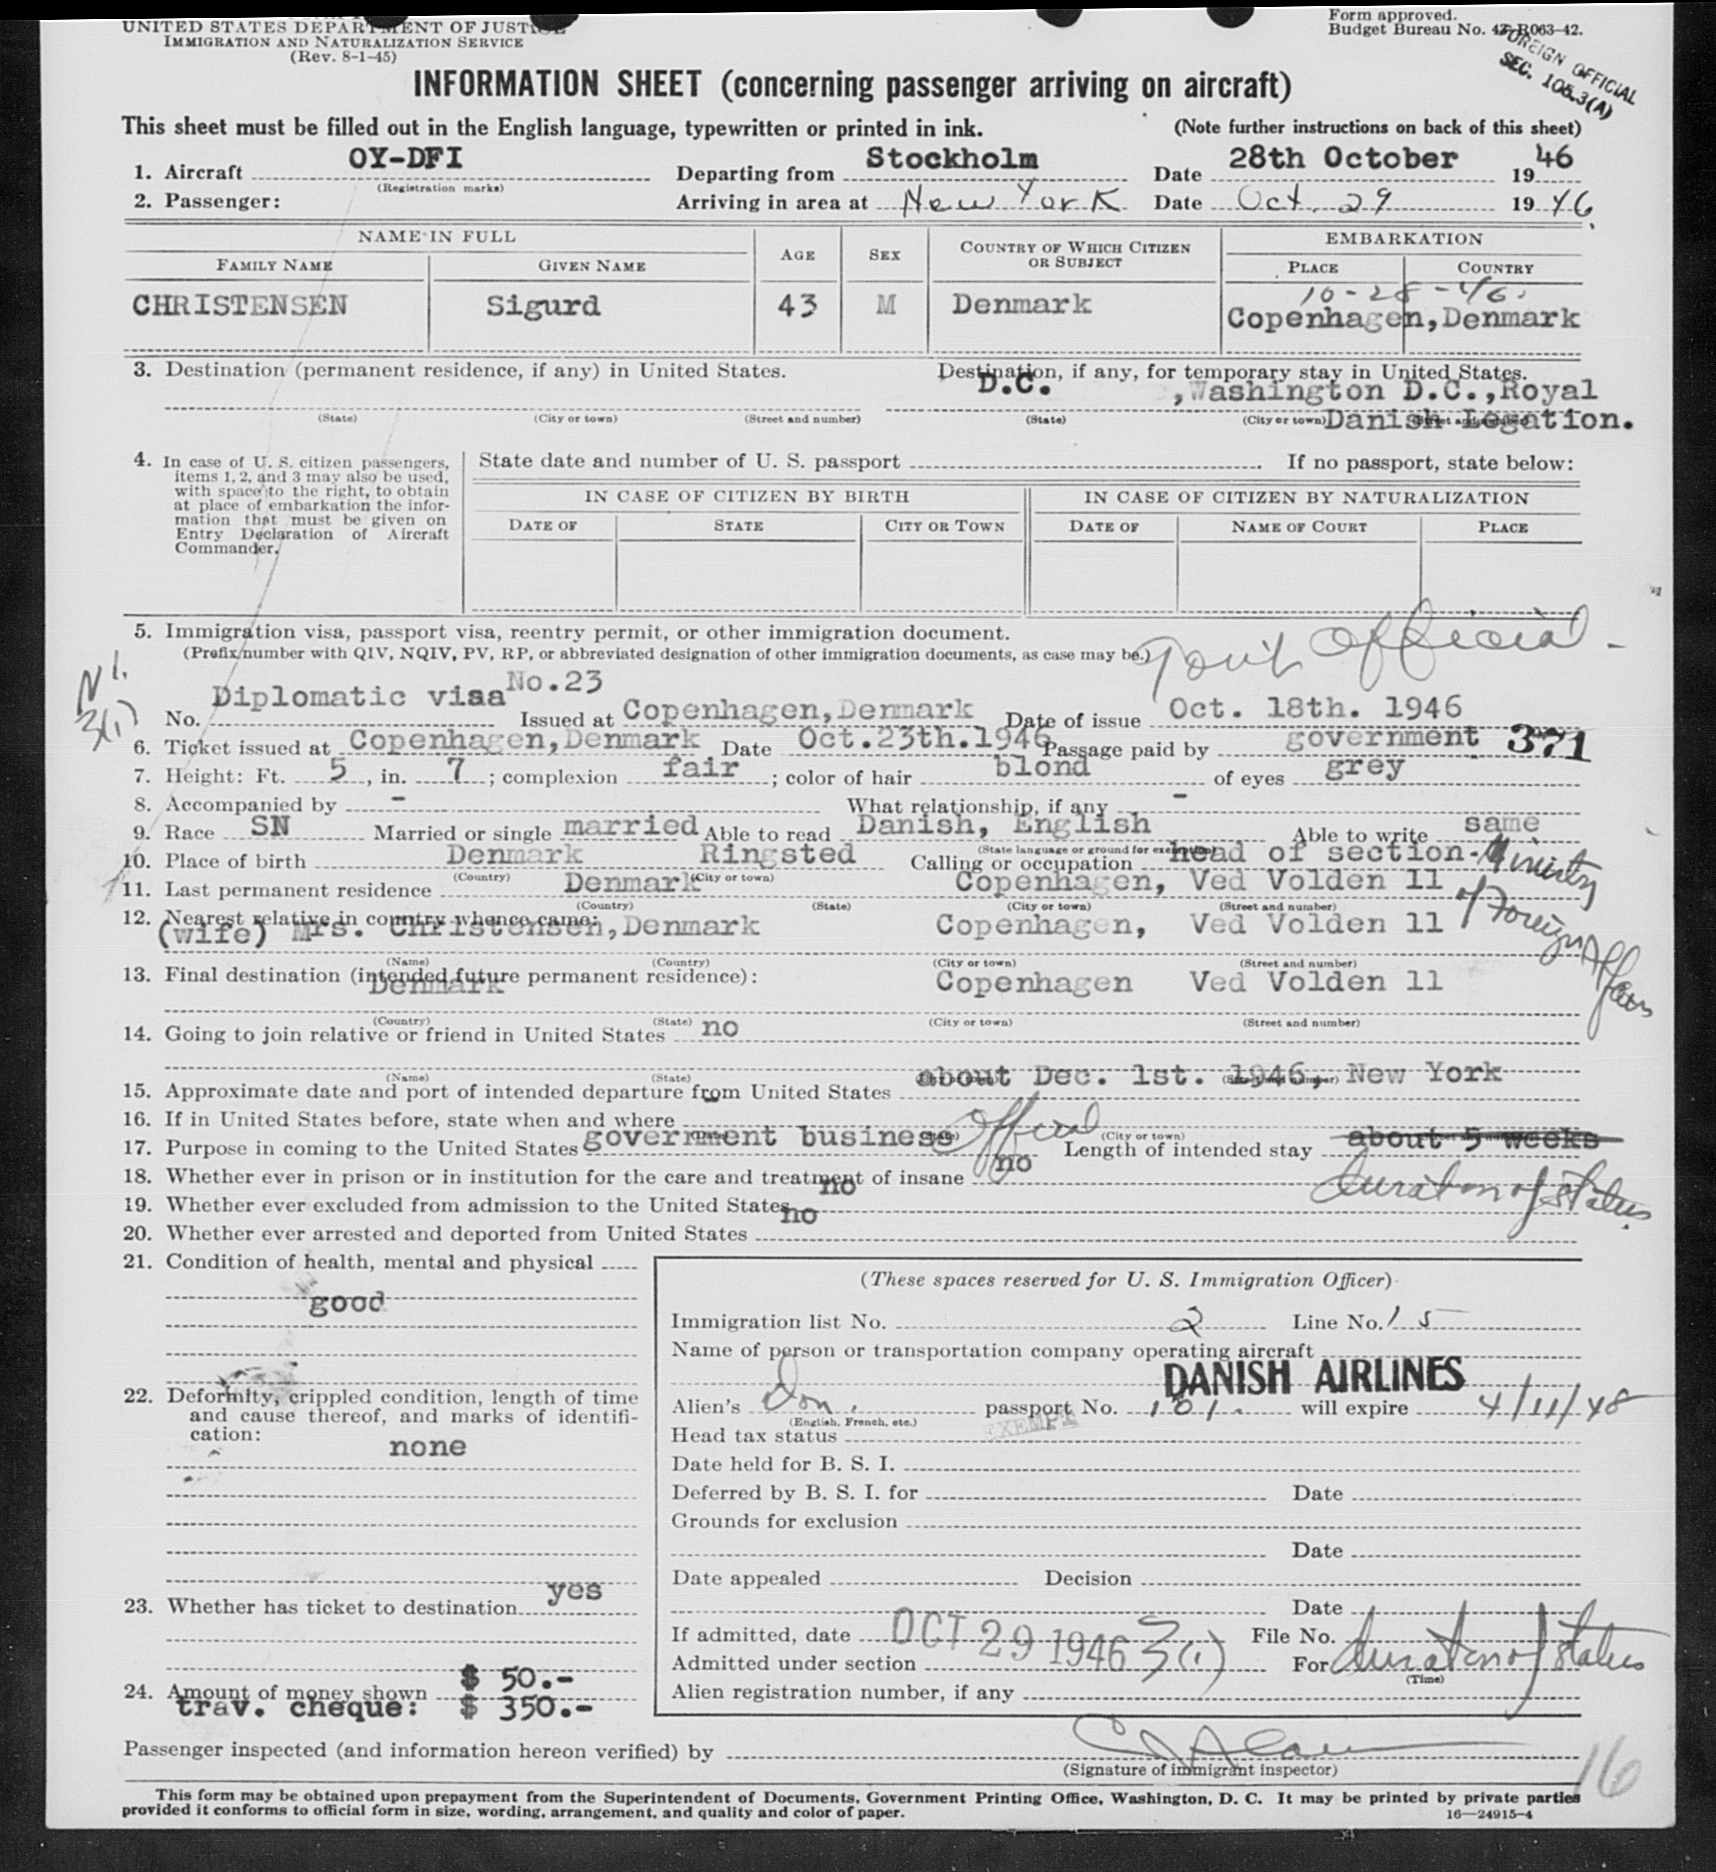 UNITED STATES DEPARTMENT OF JUSTICE
IMMIGRATION AND NATURALIZATION SERVICE
(Rev. 8-1-45)
Form approved.
Budget Bureau No. 43-R063-42.
FOREIGN OFFICIAL
SEC. 105.3(A)
INFORMATION SHEET (concerning passenger arriving on aircraft)
This sheet must be filled out in the English language, typewritten or printed in ink. (Note further instructions on back of this sheet)
1. Aircraft OY-DFI Departing from Stockholm Date 28th October 1946
(Registration marks)
2. Passenger: Arriving in area at New York Date Oct. 29 1946
NAME IN FULL AGE SEX COUNTRY OF WHICH CITIZEN OR SUBJECT EMBARKATION
FAMILY NAME GIVEN NAME PLACE COUNTRY
10-28-46.
CHRISTENSEN Sigurd 43 M Denmark Copenhagen, Denmark
3. Destination (permanent residence, if any) in United States. Destination, if any, for temporary stay in United States.
D.C. ,Washington D.C.,Royal
Danish Legation.
(State) (City or town) (Street and number) (State) (City or town) (Street and number)
4. In case of U. S. citizen passengers, items 1, 2, and 3 may also be used, with space to the right, to obtain at place of embarkation the information that must be given on Entry Declaration of Aircraft Commander.
State date and number of U. S. passport If no passport, state below:
IN CASE OF CITIZEN BY BIRTH IN CASE OF CITIZEN BY NATURALIZATION
DATE OF STATE CITY OR TOWN DATE OF NAME OF COURT PLACE
5. Immigration visa, passport visa, reentry permit, or other immigration document.
(Prefix number with QIV, NQIV, PV, RP, or abbreviated designation of other immigration documents, as case may be.)
Gov't Official -
3(1)
No. Diplomatic visa No.23 Issued at Copenhagen, Denmark Date of issue Oct. 18th. 1946
6. Ticket issued at Copenhagen, Denmark Date Oct.23th.1946 Passage paid by government 371
7. Height: Ft. 5, in. 7; complexion fair; color of hair blond of eyes grey
8. Accompanied by - What relationship, if any -
9. Race SN Married or single married Able to read Danish, English Able to write same
(State language or ground for exemption)
10. Place of birth Denmark Ringsted Calling or occupation head of section- Ministry of Foreign Affairs
(Country) (City or town)
11. Last permanent residence Denmark Copenhagen, Ved Volden 11
(Country) (State) (City or town) (Street and number)
12. Nearest relative in country whence came:
(wife) Mrs. Christensen, Denmark Copenhagen, Ved Volden 11
(Name) (Country) (City or town) (Street and number)
13. Final destination (intended future permanent residence):
Denmark Copenhagen Ved Volden 11
(Country) (State) (City or town) (Street and number)
14. Going to join relative or friend in United States no
(Name) (State)
15. Approximate date and port of intended departure from United States about Dec. 1st. 1946, New York
16. If in United States before, state when and where -
(City or town)
17. Purpose in coming to the United States government business Official Length of intended stay about 5 weeks
duration of status.
18. Whether ever in prison or in institution for the care and treatment of insane no
19. Whether ever excluded from admission to the United States no
20. Whether ever arrested and deported from United States no
21. Condition of health, mental and physical
good
22. Deformity, crippled condition, length of time and cause thereof, and marks of identification:
none
23. Whether has ticket to destination yes
24. Amount of money shown $ 50.-
trav. cheque: $ 350.-
(These spaces reserved for U. S. Immigration Officer)
Immigration list No. 2 Line No. 15
Name of person or transportation company operating aircraft
DANISH AIRLINES
Alien's Dan. passport No. 181. will expire 4/11/48
(English, French, etc.)
Head tax status EXEMPT
Date held for B. S. I.
Deferred by B. S. I. for Date
Grounds for exclusion
Date
Date appealed Decision
Date
If admitted, date OCT 29 1946 File No.
Admitted under section 3(1) For duration of status
(Time)
Alien registration number, if any
Passenger inspected (and information hereon verified) by
(Signature of immigrant inspector)
16
This form may be obtained upon prepayment from the Superintendent of Documents, Government Printing Office, Washington, D. C. It may be printed by private parties
provided it conforms to official form in size, wording, arrangement, and quality and color of paper. 16—24915-4